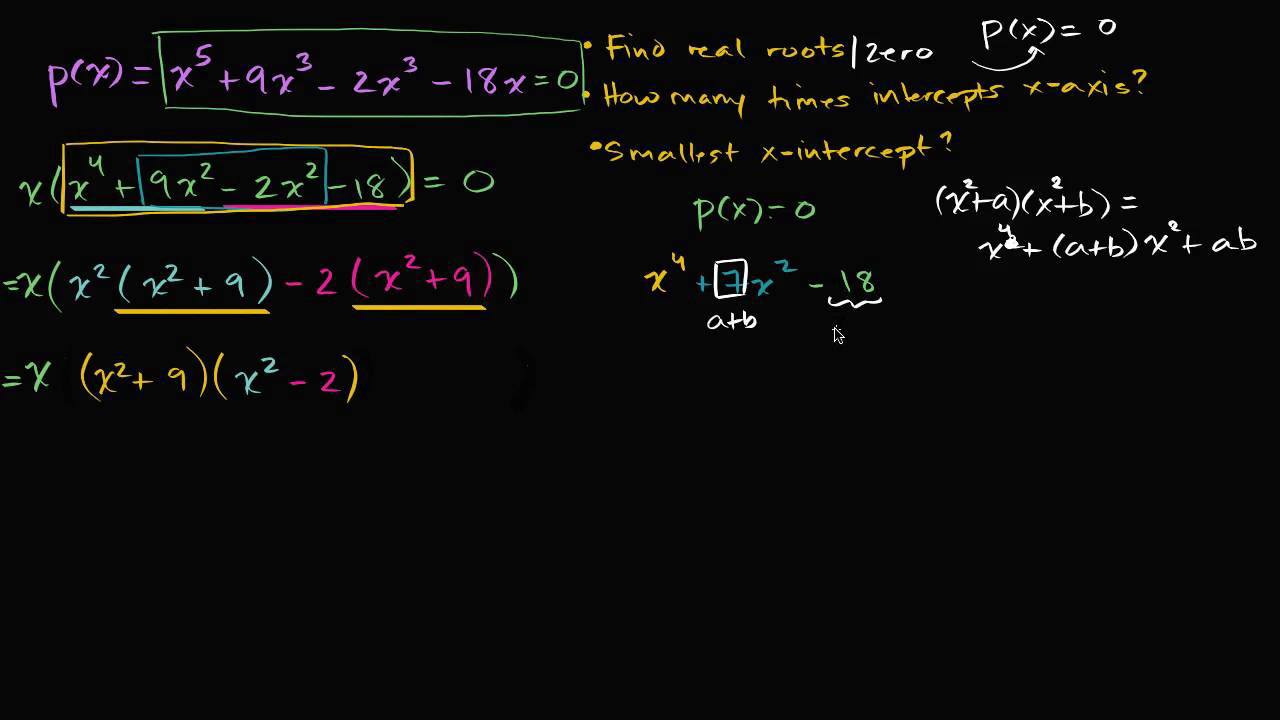 p(x) = x⁵ + 9x³ - 2x³ - 18x = 0
• Find real roots/zero p(x) = 0
• How many times intercepts x-axis?
• Smallest x-intercept?
x(x⁴ + 9x² - 2x² - 18) = 0
= x(x²(x² + 9) - 2(x² + 9))
= x (x² + 9)(x² - 2)
p(x) = 0
x⁴ + 7x² - 18
a+b
(x²+a)(x²+b) =
x⁴ + (a+b)x² + ab